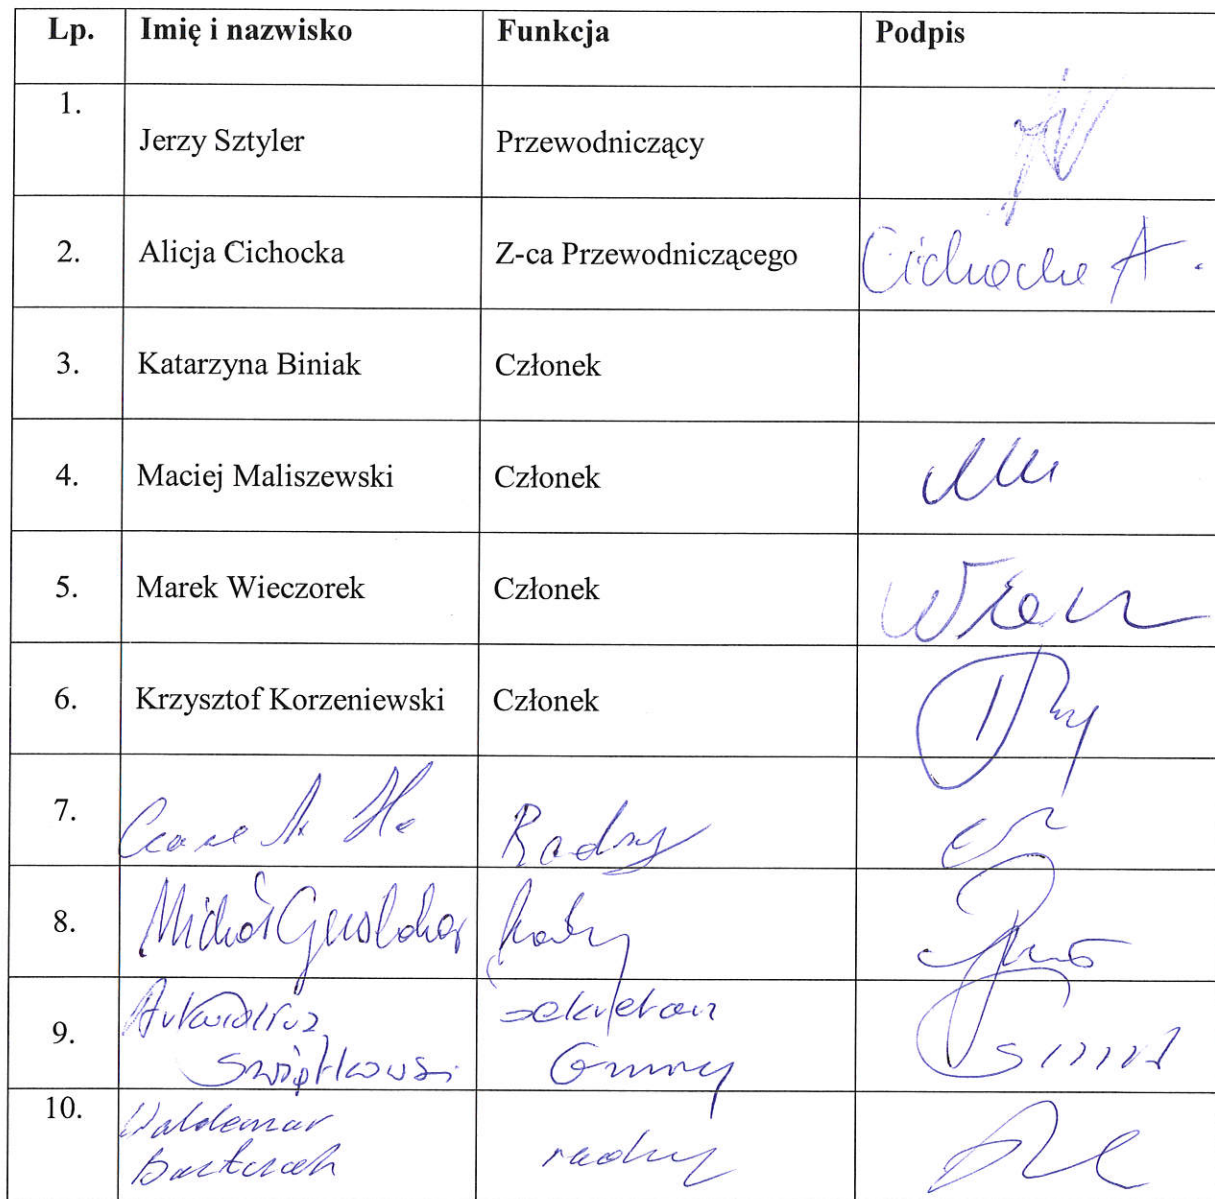 Lp. Imię i nazwisko Funkcja Podpis
1. Jerzy Sztyler Przewodniczący
2. Alicja Cichocka Z-ca Przewodniczącego Cichocka A.
3. Katarzyna Biniak Członek
4. Maciej Maliszewski Członek
5. Marek Wieczorek Członek
6. Krzysztof Korzeniewski Członek
7. Radny
8. Michał Radny
9. Arkadiusz Sekretarz
Świątkowski Gminy
10. Waldemar
Bartczak radny